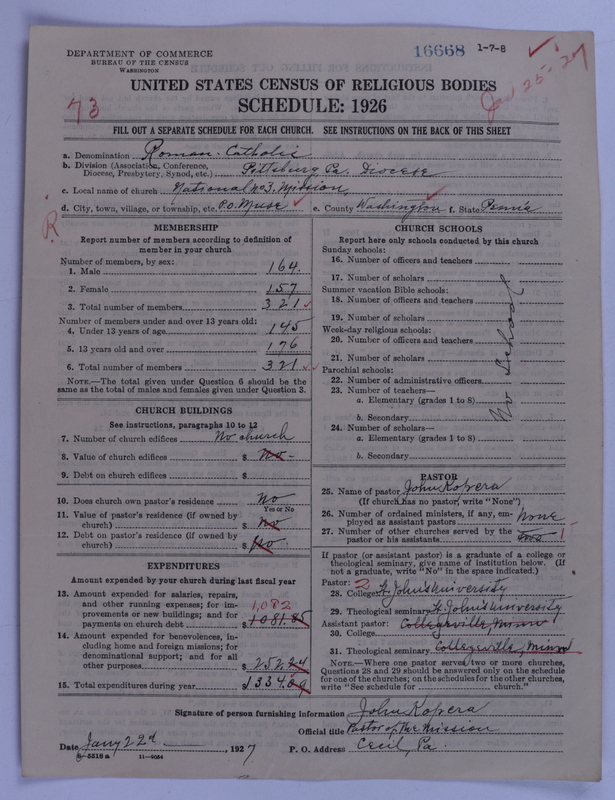 DEPARTMENT OF COMMERCE
BUREAU OF THE CENSUS
WASHINGTON
16668 1-7-8
Jan 25-27
UNITED STATES CENSUS OF RELIGIOUS BODIES
73
SCHEDULE: 1926
FILL OUT A SEPARATE SCHEDULE FOR EACH CHURCH. SEE INSTRUCTIONS ON THE BACK OF THIS SHEET
a. Denomination Roman-Catholic
b. Division (Association, Conference, Diocese, Presbytery, Synod, etc.) Pittsburg, Pa. Diocese
c. Local name of church National No 3, Mission,
d. City, town, village, or township, etc. P.O. Muse e. County Washington f. State Penna
R
MEMBERSHIP
Report number of members according to definition of member in your church
Number of members, by sex:
1. Male 164.
2. Female 157
3. Total number of members 321
Number of members under and over 13 years old:
4. Under 13 years of age 145
5. 13 years old and over 176
6. Total number of members 321
NOTE.—The total given under Question 6 should be the same as the total of males and females given under Question 3.
CHURCH BUILDINGS
See instructions, paragraphs 10 to 12
7. Number of church edifices No church
8. Value of church edifices $ No -
9. Debt on church edifices $
10. Does church own pastor's residence No
Yes or No
11. Value of pastor's residence (if owned by church) $ No
12. Debt on pastor's residence (if owned by church) $ No
EXPENDITURES
Amount expended by your church during last fiscal year
13. Amount expended for salaries, repairs, and other running expenses; for improvements or new buildings; and for payments on church debt 1,082 $ 1081.85
14. Amount expended for benevolences, including home and foreign missions; for denominational support; and for all other purposes $ 252.24
15. Total expenditures during year $ 1334.09
CHURCH SCHOOLS
Report here only schools conducted by this church
Sunday schools:
16. Number of officers and teachers
17. Number of scholars
Summer vacation Bible schools:
18. Number of officers and teachers
19. Number of scholars
Week-day religious schools:
20. Number of officers and teachers
21. Number of scholars
Parochial schools:
22. Number of administrative officers
23. Number of teachers—
a. Elementary (grades 1 to 8)
b. Secondary
24. Number of scholars—
a. Elementary (grades 1 to 8)
b. Secondary
No School
PASTOR
25. Name of pastor John Kopera
(If church has no pastor, write "None")
26. Number of ordained ministers, if any, employed as assistant pastors None
27. Number of other churches served by the pastor or his assistants 1
If pastor (or assistant pastor) is a graduate of a college or theological seminary, give name of institution below. (If not a graduate, write "No" in the space indicated.)
Pastor: 2
28. College St. John's University
29. Theological seminary St. John's University
Assistant pastor: Collegeville, Minn
30. College
31. Theological seminary Collegeville, Minn
NOTE.—Where one pastor serves two or more churches, Questions 28 and 29 should be answered only on the schedule for one of the churches; on the schedules for the other churches, write "See schedule for church."
Signature of person furnishing information John Kopera
Official title Pastor of the Mission
Date Jany 22d, 1927 P. O. Address Cecil, Pa.
8-5518 a 11-9054